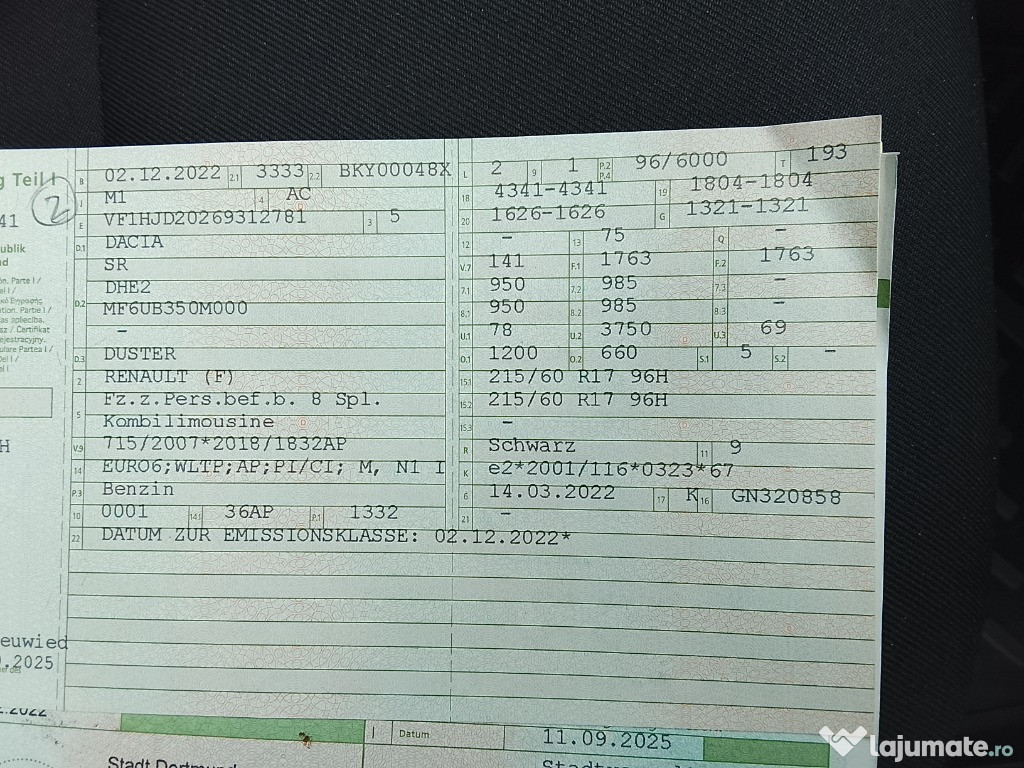 g Teil I
41
2
ublik
nd
ón. Parte I /
Partie I /
as apliecība.
sz / Certifikat
ejestracyjny.
ulare Partea I /
H
euwied
.2025
B 02.12.2022 2.1 3333 2.2 BKY00048X
J M1 4 AC
E VF1HJD20269312781 3 5
D.1 DACIA
SR
DHE2
D.2 MF6UB350M000
–
D.3 DUSTER
2 RENAULT (F)
Fz.z.Pers.bef.b. 8 Spl.
5 Kombilimousine
V.9 715/2007*2018/1832AP
14 EURO6;WLTP;AP;PI/CI; M, N1 I
P.3 Benzin
10 0001 14.1 36AP P.1 1332
22 DATUM ZUR EMISSIONSKLASSE: 02.12.2022*
L 2 9 1 P.2 P.4 96/6000 T 193
18 4341-4341 19 1804-1804
20 1626-1626 G 1321-1321
12 – 13 75 Q –
V.7 141 F.1 1763 F.2 1763
7.1 950 7.2 985 7.3 –
8.1 950 8.2 985 8.3 –
U.1 78 U.2 3750 U.3 69
O.1 1200 O.2 660 S.1 5 S.2 –
15.1 215/60 R17 96H
15.2 215/60 R17 96H
15.3 –
R Schwarz 11 9
K e2*2001/116*0323*67
6 14.03.2022 17 K 16 GN320858
21 –
.2022
Datum 11.09.2025
Stadt Dortmund
lajumate.ro